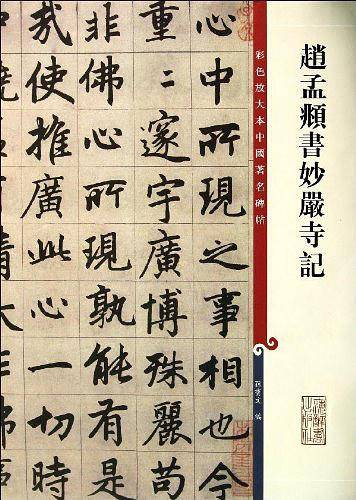 趙孟頫書妙嚴寺記
彩色放大本中國著名碑帖
孫寶文 編
心中所現之事相也今
重〻邃宇廣博殊麗苟
非佛心所現孰能有是
哉使推廣此心一切時